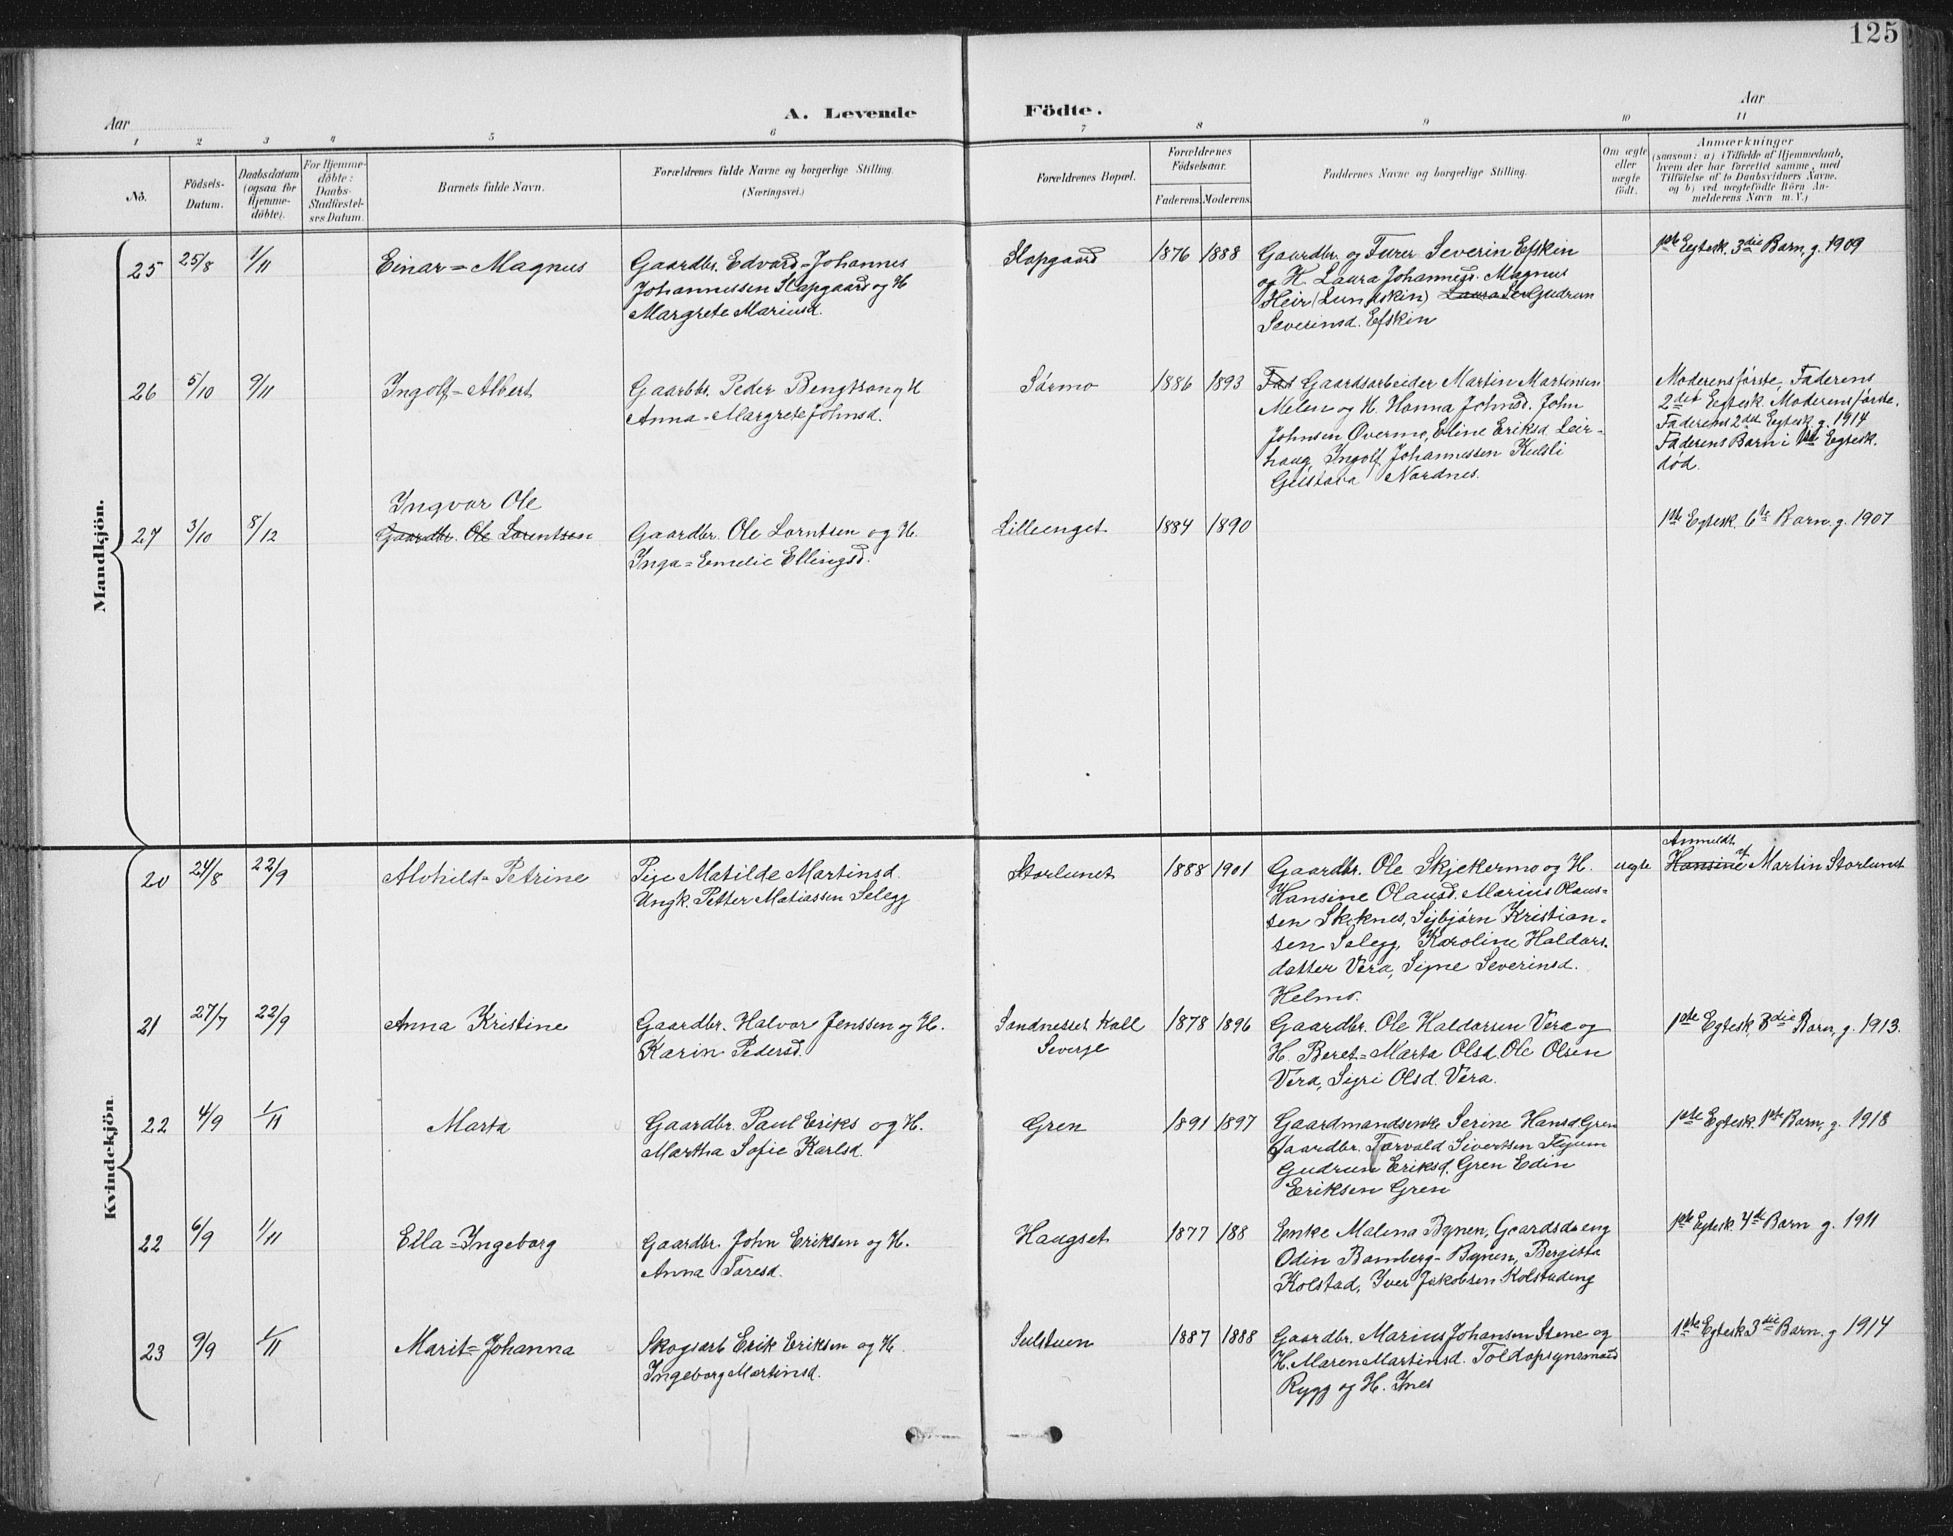 125
Aar
A. Levende Födte.
Aar
1 2 3 4 5 6 7 8 9 10 11
No.
Födsels-
Datum.
Daabsdatum
(ogsaa for
Hjemme-
döbte).
For Hjemme-
döbte:
Daabs-
Stadfæstel-
ses Datum.
Barnets fulde Navn.
Forældrenes fulde Navne og borgerlige Stilling.
(Næringsvei.)
Forældrenes Bopæl.
Forældrenes
Födselsaar.
Faderens. Moderens.
Faddernes Navne og borgerlige Stilling.
Om ægte
eller
uægte
födt.
Anmærkninger
(saasom: a) i Tilfælde af Hjemmedaab,
hvem der har forrettet samme, med
Tilföielse af to Daabsvidners Navne,
og b) ved uægtefödte Börn An-
melderens Navn m. V.)
Mandkjön.
25 25/8 1/11 Einar = Magnus
Gaardbr. Edvard = Johannes
Johannessen Slapgaard og H
Margrete Mariusd.
Slapgaard 1876 1888
Gaardbr. og Furer Severin Efskin
og H. Laura Johannesd. Magnus
Heir (Lundskin) Laura Sev Gudrun
Severinsd. Efskin
1ste Egtesk. 3die Barn, g. 1909
26 5/10 9/11 Ingolf = Albert
Gaarbbr. Peder Bengtson og H
Anna = Margrete Johnsd.
Sörmo 1886 1893
Fad Gaardsarbeider Martin Martinsen
Melen og H. Hanna Johnsd. John
Johnsen Overmo, Eline Eriksd Leir-
haug, Ingolf Johannessen Kulsli
Gustava Nordnes.
Moderens förste, Faderens
2det Egtesk. Moderens förste.
Faderens 2det Egtesk. g. 1914
Faderens Barn i 1ste Egtesk.
död.
Ingvar Ole
27 3/10 8/12 Gaardbr. Ole Lorentsen
Gaardbr. Ole Lorntsen og H.
Inga = Emelie Ellingsd.
Lilleenget 1884 1890
1ste Egtesk. 6te Barn, g. 1907
Kvindekjön.
20 24/8 22/9 Alvhild = Petrine
Pige Matilde Martinsd.
Ungk. Petter Matiassen Selegg
Storlunet 1888 1901
Gaardbr. Ole Skjekermo og H.
Hansine Olausd. Marius Olaus-
sen Skeknes, Sigbjörn Kristian-
sen Selegg, Karoline Haldors-
datter Vera, Signe Severinsd.
Helmo.
uegte
Anmeldt af
Hansine Martin Storlunet
21 27/7 22/9 Anna Kristine
Gaardbr. Halvor Jenssen og H.
Karin Pedersd.
Sandnesset Kall
Sverge
1878 1896
Gaardbr. Ole Haldorsen Vera og
H. Beret = Marta Olsd. Ole Olsen
Vera, Sigri Olsd. Vera.
1ste Egtesk. 3die Barn, g. 1913.
22 4/9 1/11 Marta
Gaardbr. Paul Eriks og H.
Martha Sofie Karlsd.
Gren 1891 1897
Gaardmandsenke Serine Hansd Gren
Gaardbr. Torvald Sivertsen Flyum
Gudrun Eriksd. Gren Edin
Eriksen Gren
1ste Egtesk. 1ste Barn, g. 1918
22 6/9 1/11 Ella = Ingeborg
Gaardbr. John Eriksen og H.
Anna Toresd.
Haugset 1877 188
Enke Malena Bynen, Gaardsdreng
Odin Bamberg = Bynen, Bergitta
Kolstad, Iver Jakobsen Kolstadeng
1ste Egtesk. 4de Barn g. 1911
23 9/9 1/11 Marit = Johanna
Skogsarb Erik Eriksen og H.
Ingeborg Martinsd.
Sulstuen 1887 1888
Gaardbr. Marius Johansen Stene og
H. Maren Martinsd. Toldopsynsmand
Rygg og H. Ines
1ste Egtesk 3die Barn. g 1914